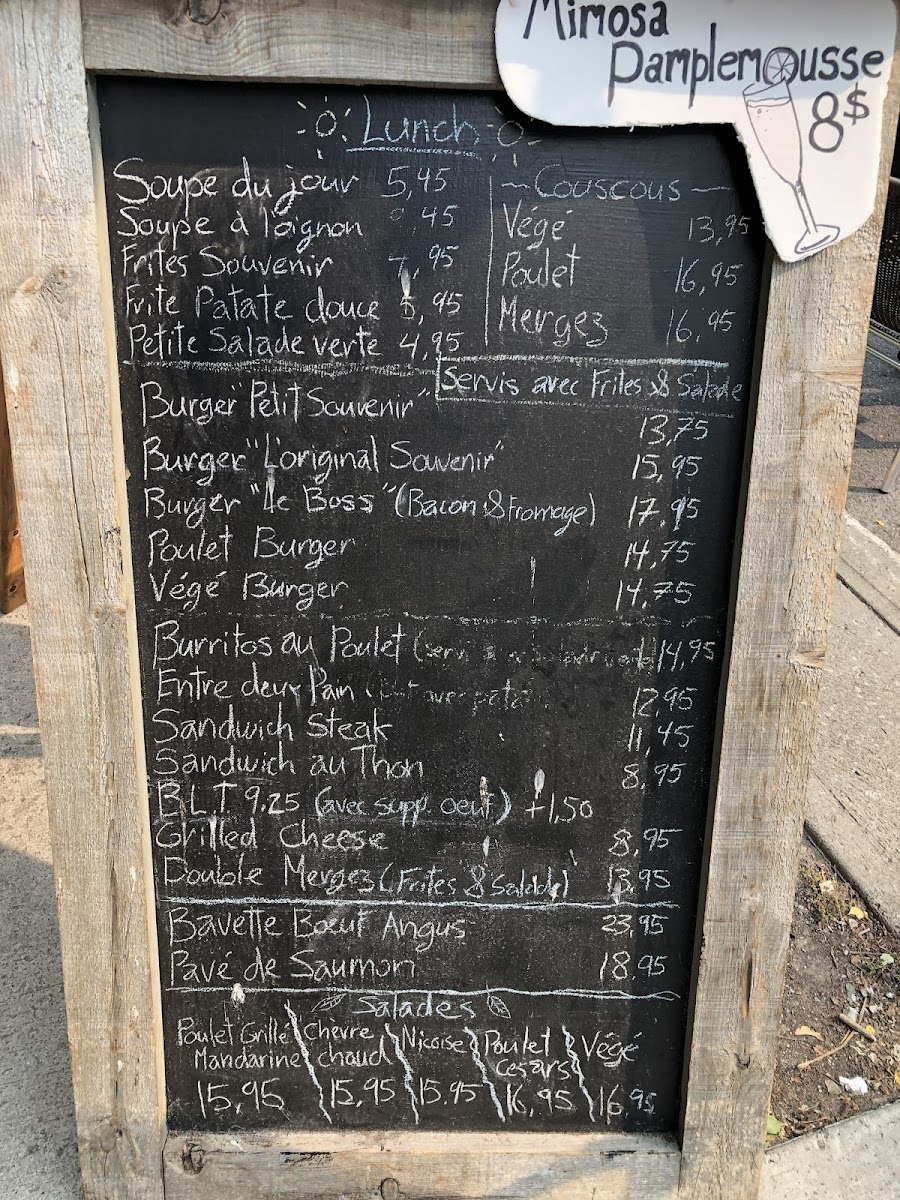 Mimosa
Pamplemousse
8$
Lunch
Soupe du jour 5,45
Soupe à l'oignon ,45
Frites Souvenir ,95
Frite Patate douce 5,95
Petite Salade verte 4,95
Couscous
Végé 13,95
Poulet 16,95
Merguez 16,95
Servis avec Frites & Salade
Burger "Petit Souvenir" 13,75
Burger "L'original Souvenir" 15,95
Burger "Le Boss" (Bacon & fromage) 17,95
Poulet Burger 14,75
Végé Burger 14,75
Burritos au Poulet 14,95
Entre deux Pain 12,95
Sandwich steak 11,45
Sandwich au Thon 8,95
B.L.T 9.25 (avec supp. oeuf) +1,50
Grilled Cheese 8,95
Double Merguez (Frites & Salade) 13,95
Bavette Bœuf Angus 23,95
Pavé de Saumon 18.95
Salades
Poulet Grillé Mandarine 15,95
Chèvre chaud 15,95
Niçoise 15.95
Poulet cesars 16,95
Végé 16,95